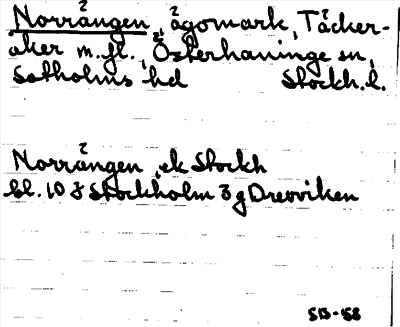 Norrängen, ägomark, Täcker-
åker m.fl., Österhaninge sn,
Sotholms hd Stockh. l.
Norrängen, ek Stockh
bl. 10 I Stockholm 3 g Drevviken